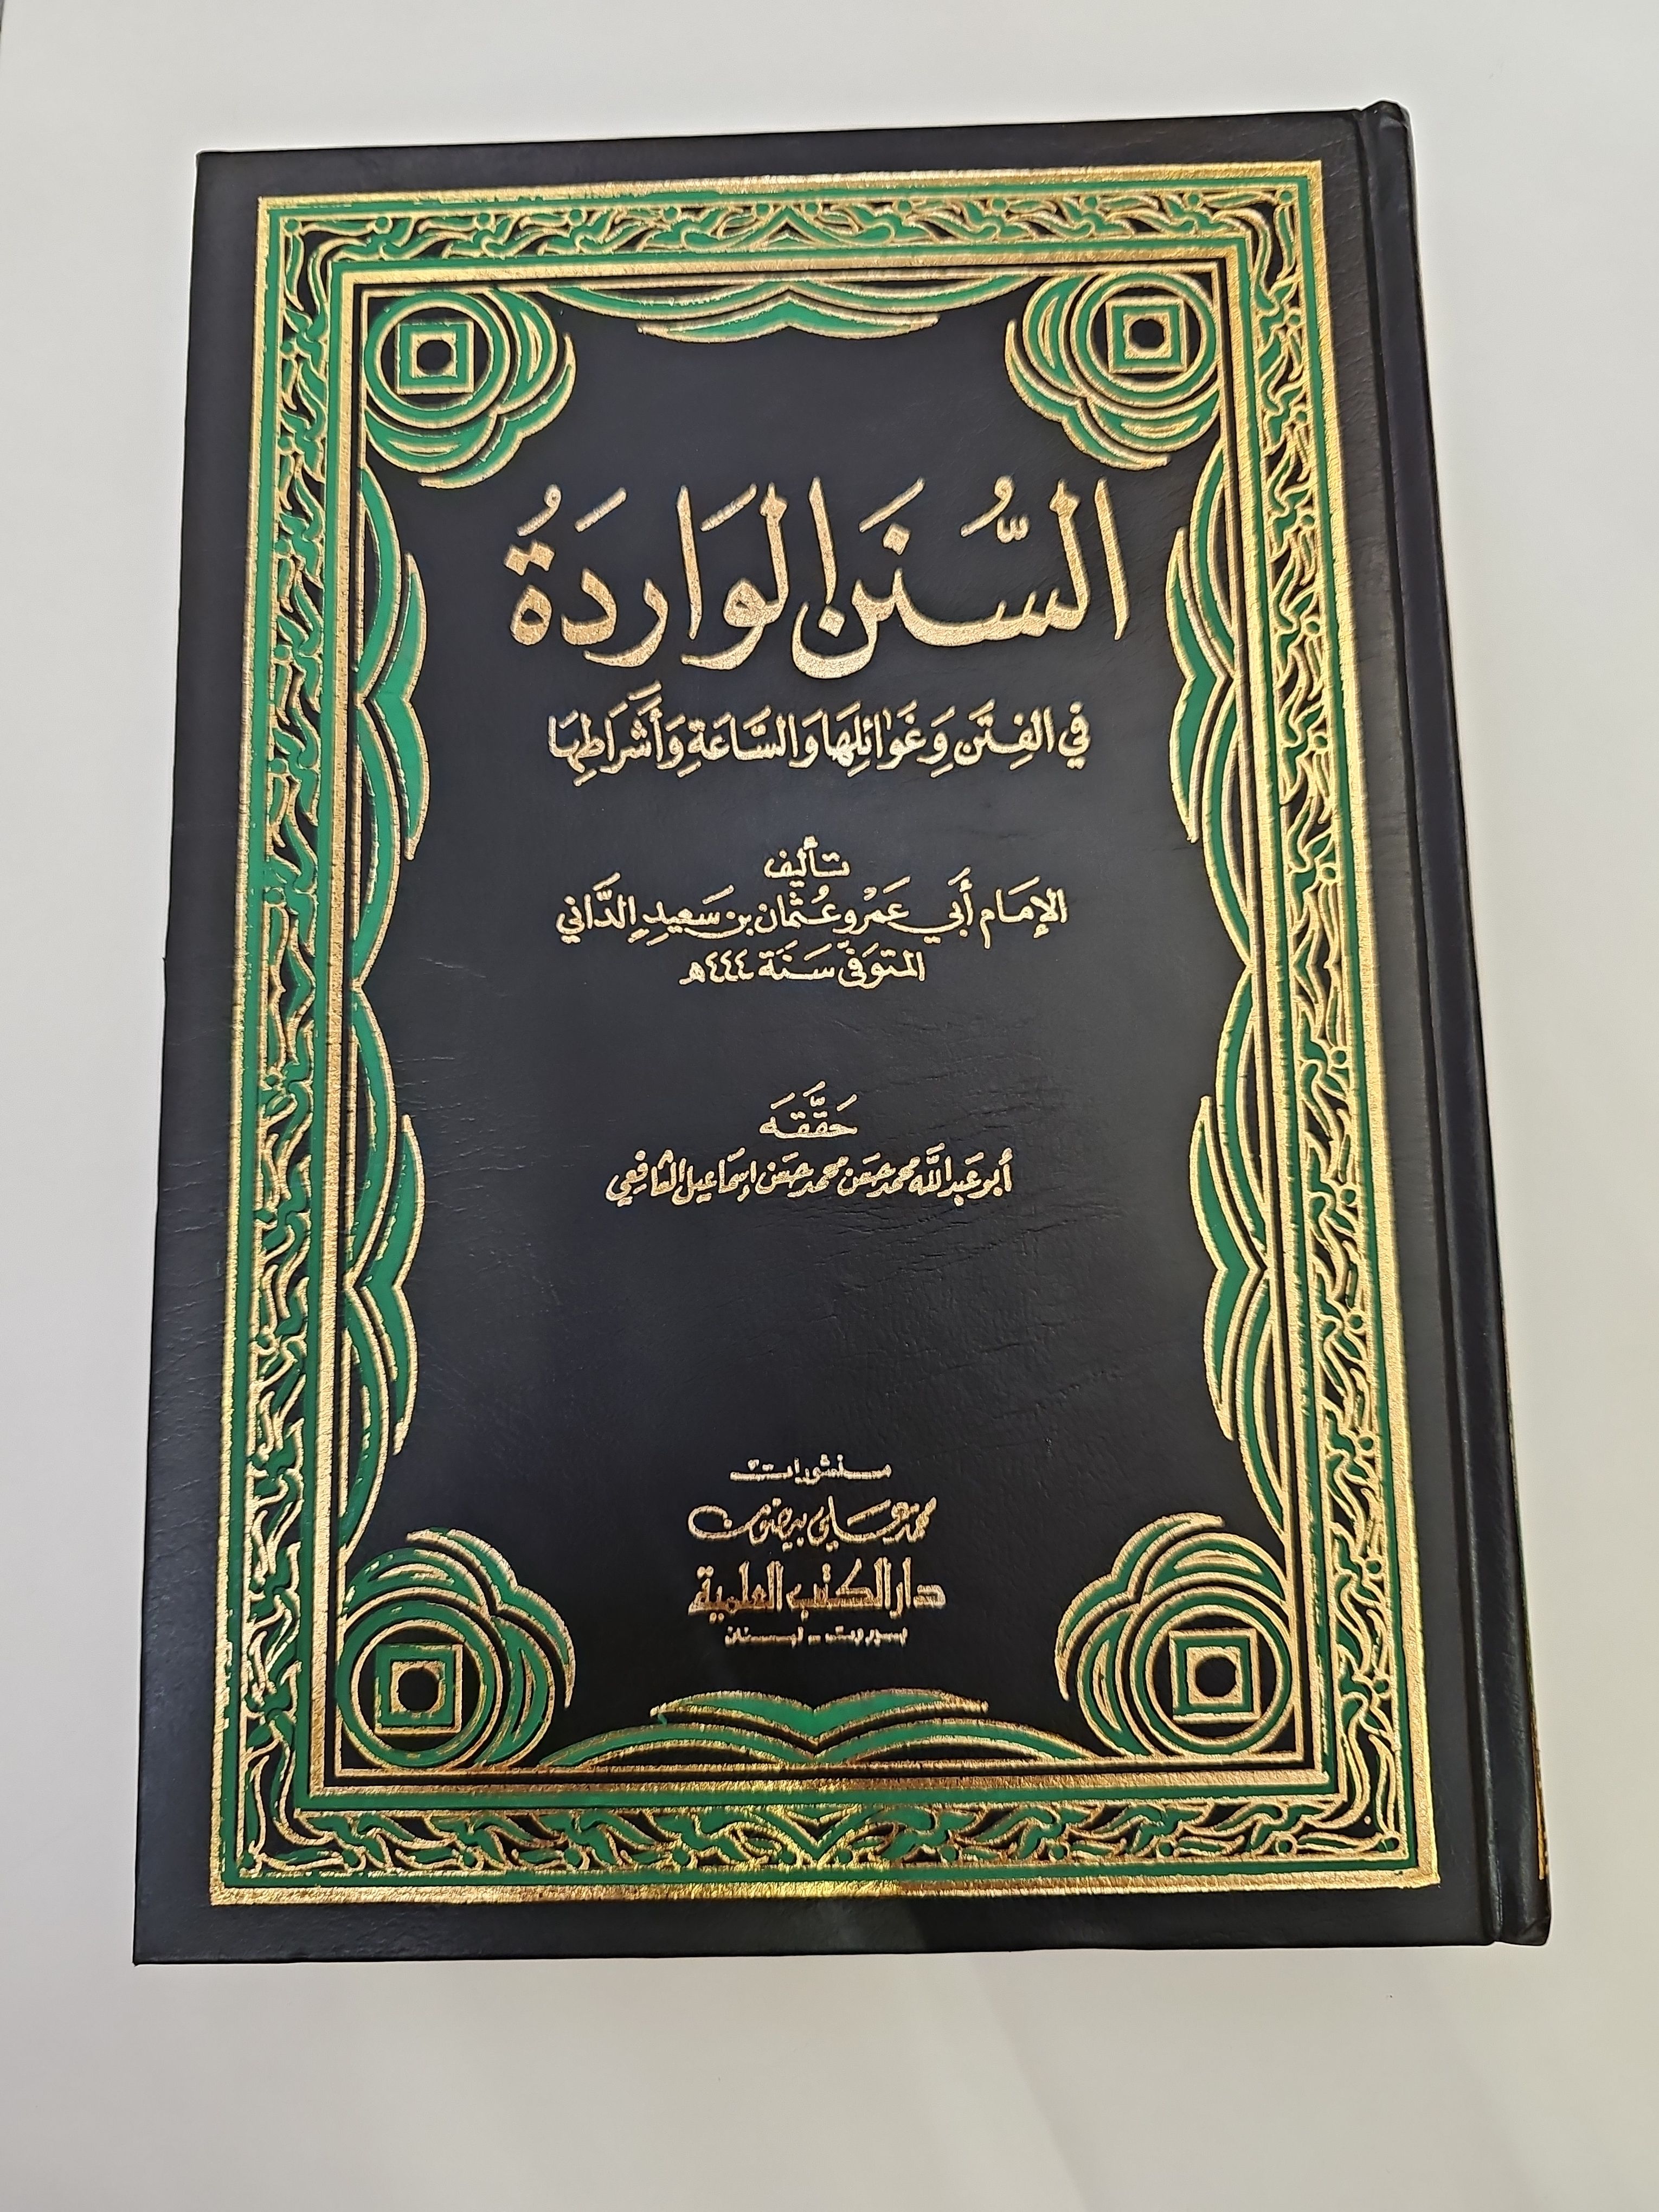 السُّنَن الوَارِدَةُ
في الفِتَن وَغَوَائِلِهَا وَالسَّاعَةِ وَأَشْرَاطِهَا
تأليف
الإمَام أَبي عَمْرو عُثمَان بن سَعيدٍ الدَّاني
المتوَفّى سَنَة ٤٤٤هـ
حَقَّقَه
أبو عَبد اللَّه محمد حسَن محمد حسَن إسمَاعيل الشافِعِي
منشورات
محمد علي بيضون
دار الكتب العلمية
بيروت - لبنان